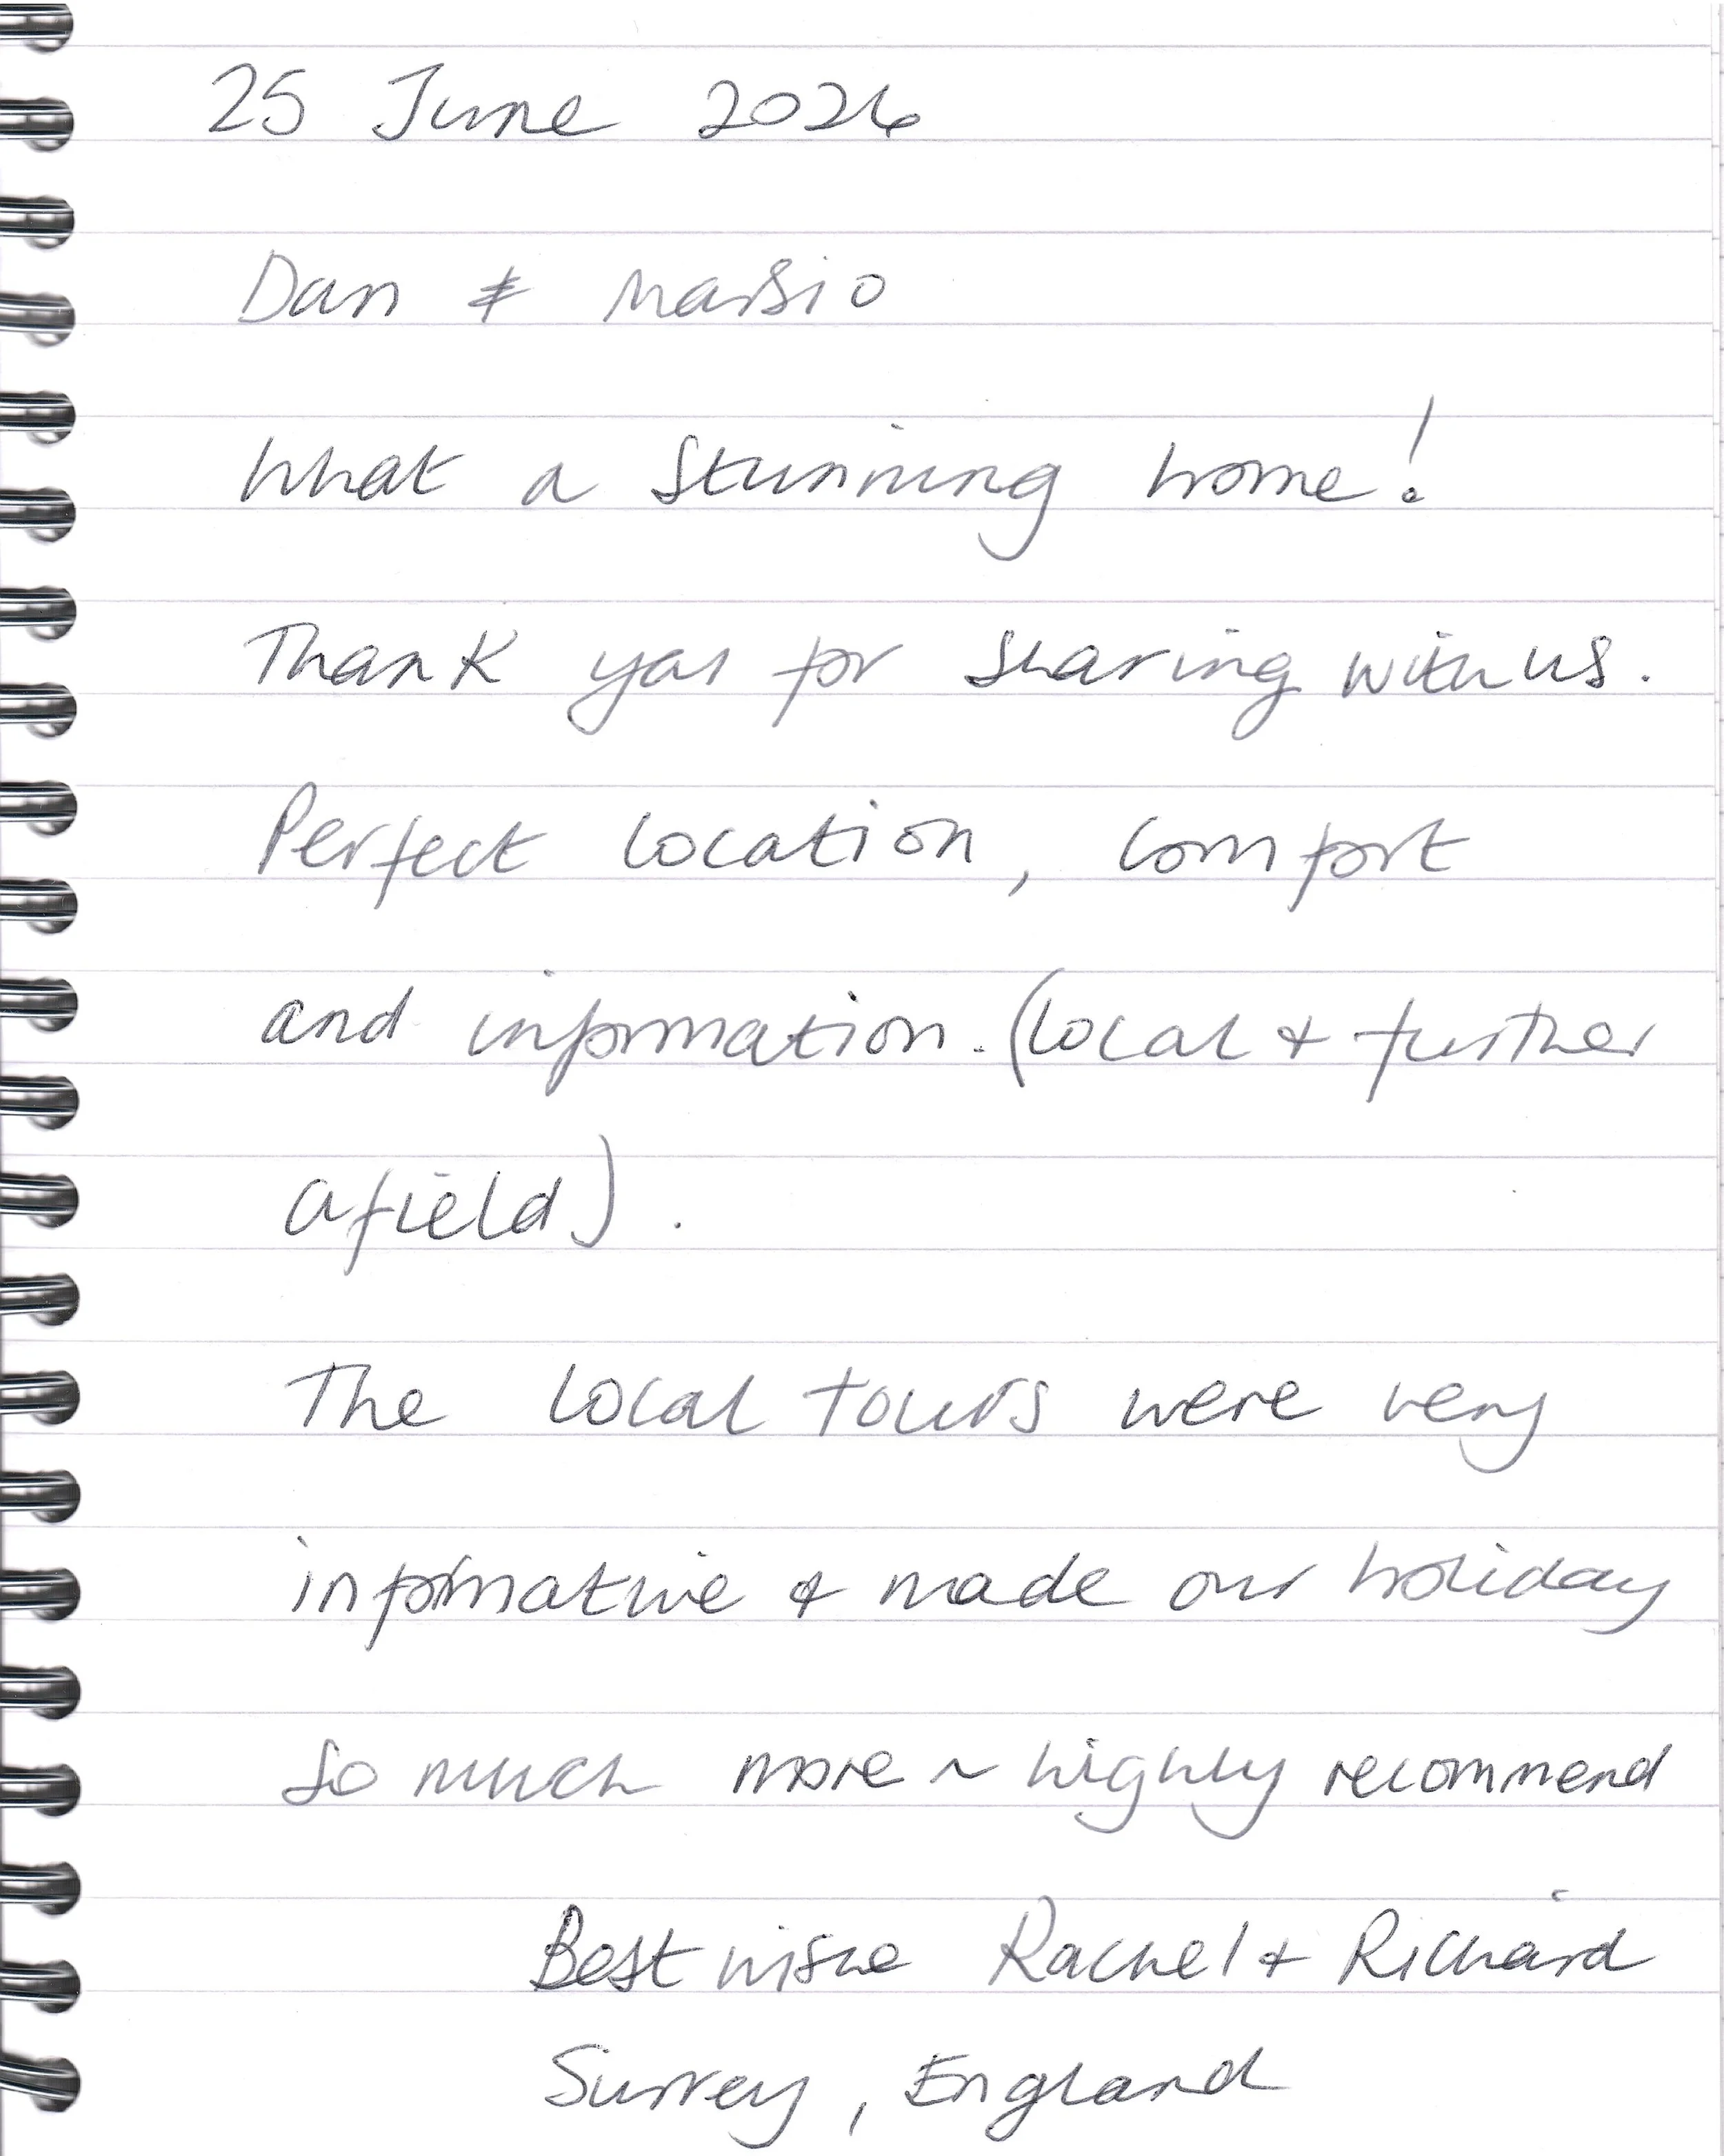 25 June 2026
Dan & Marsio
What a stunning home!
Thank you for sharing with us.
Perfect location, comfort
and information. (local + further
afield).
The local tours were very
informative & made our holiday
so much more ~ highly recommend
Best wishe Rachel + Richard
Surrey, England